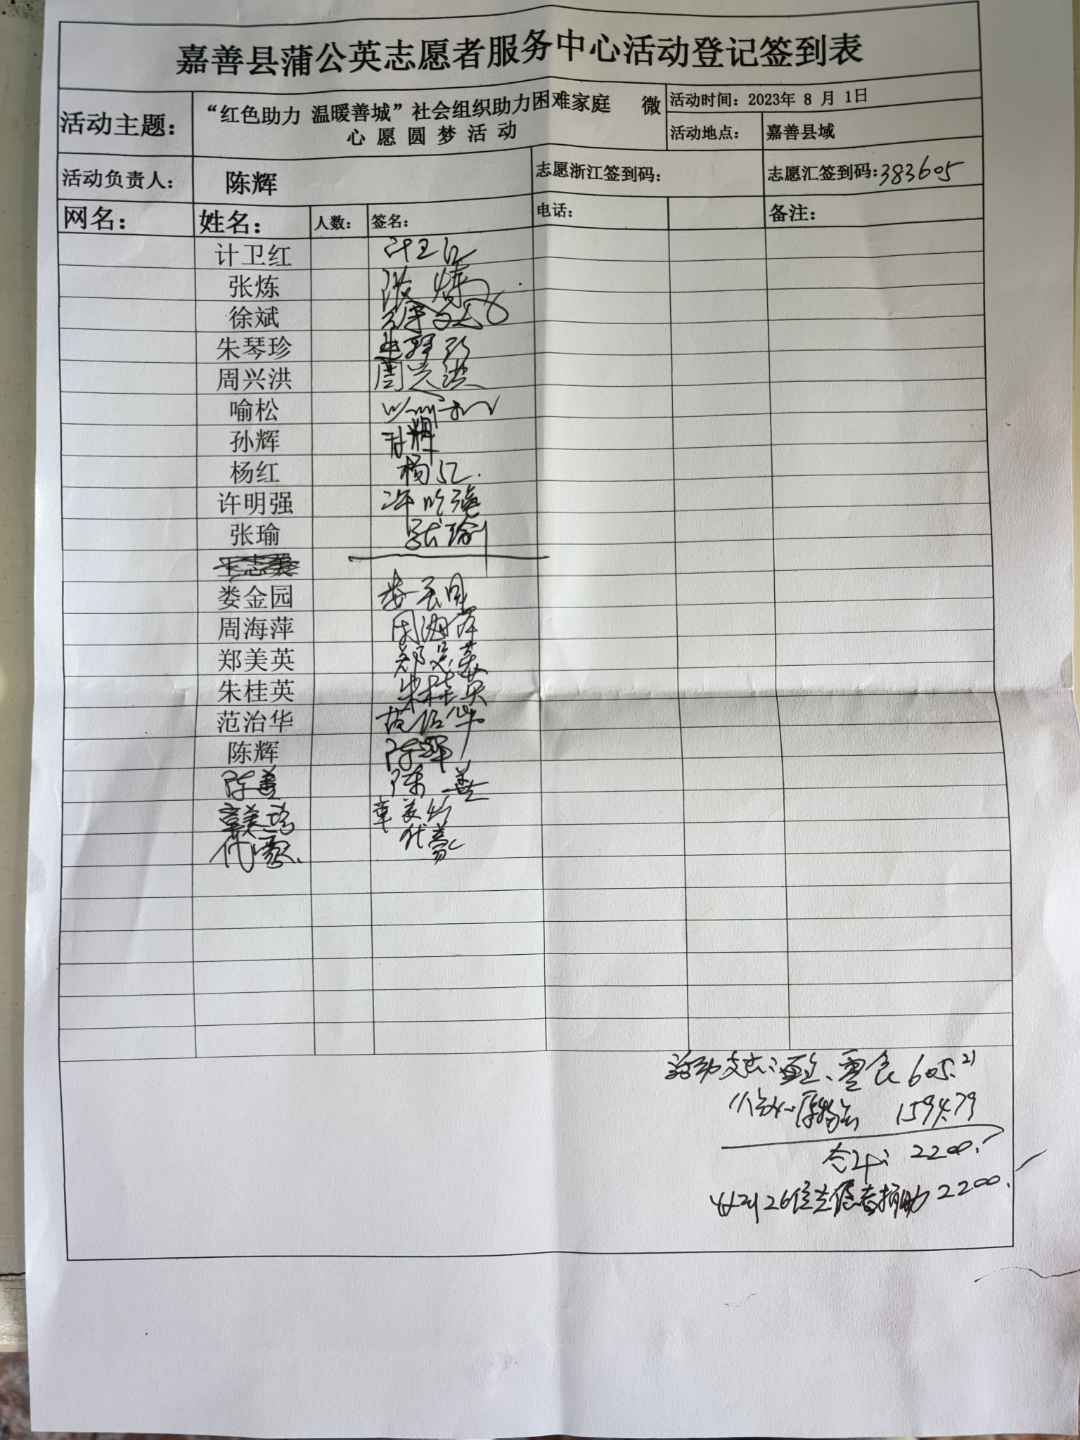 嘉善县蒲公英志愿者服务中心活动登记签到表
活动主题： “红色助力 温暖善城”社会组织助力困难家庭 微
心愿圆梦活动
活动时间：2023年 8 月 1日
活动地点： 嘉善县域
活动负责人： 陈辉 志愿浙江签到码： 志愿汇签到码：383605
网名： 姓名： 人数： 签名： 电话： 备注：
计卫红 计卫红
张炼 张炼
徐斌 徐斌
朱琴珍 朱琴珍
周兴洪 周兴洪
喻松 喻松
孙辉 孙辉
杨红 杨红
许明强 许明强
张瑜 张瑜
娄金园 娄金园
周海萍 周海萍
郑美英 郑美英
朱桂英 朱桂英
范治华 范治华
陈辉 陈辉
陈善 陈善
章美
代
活动支出： 零食 605.21
159479
合计： 2200.
收到26位志愿者捐助2200.